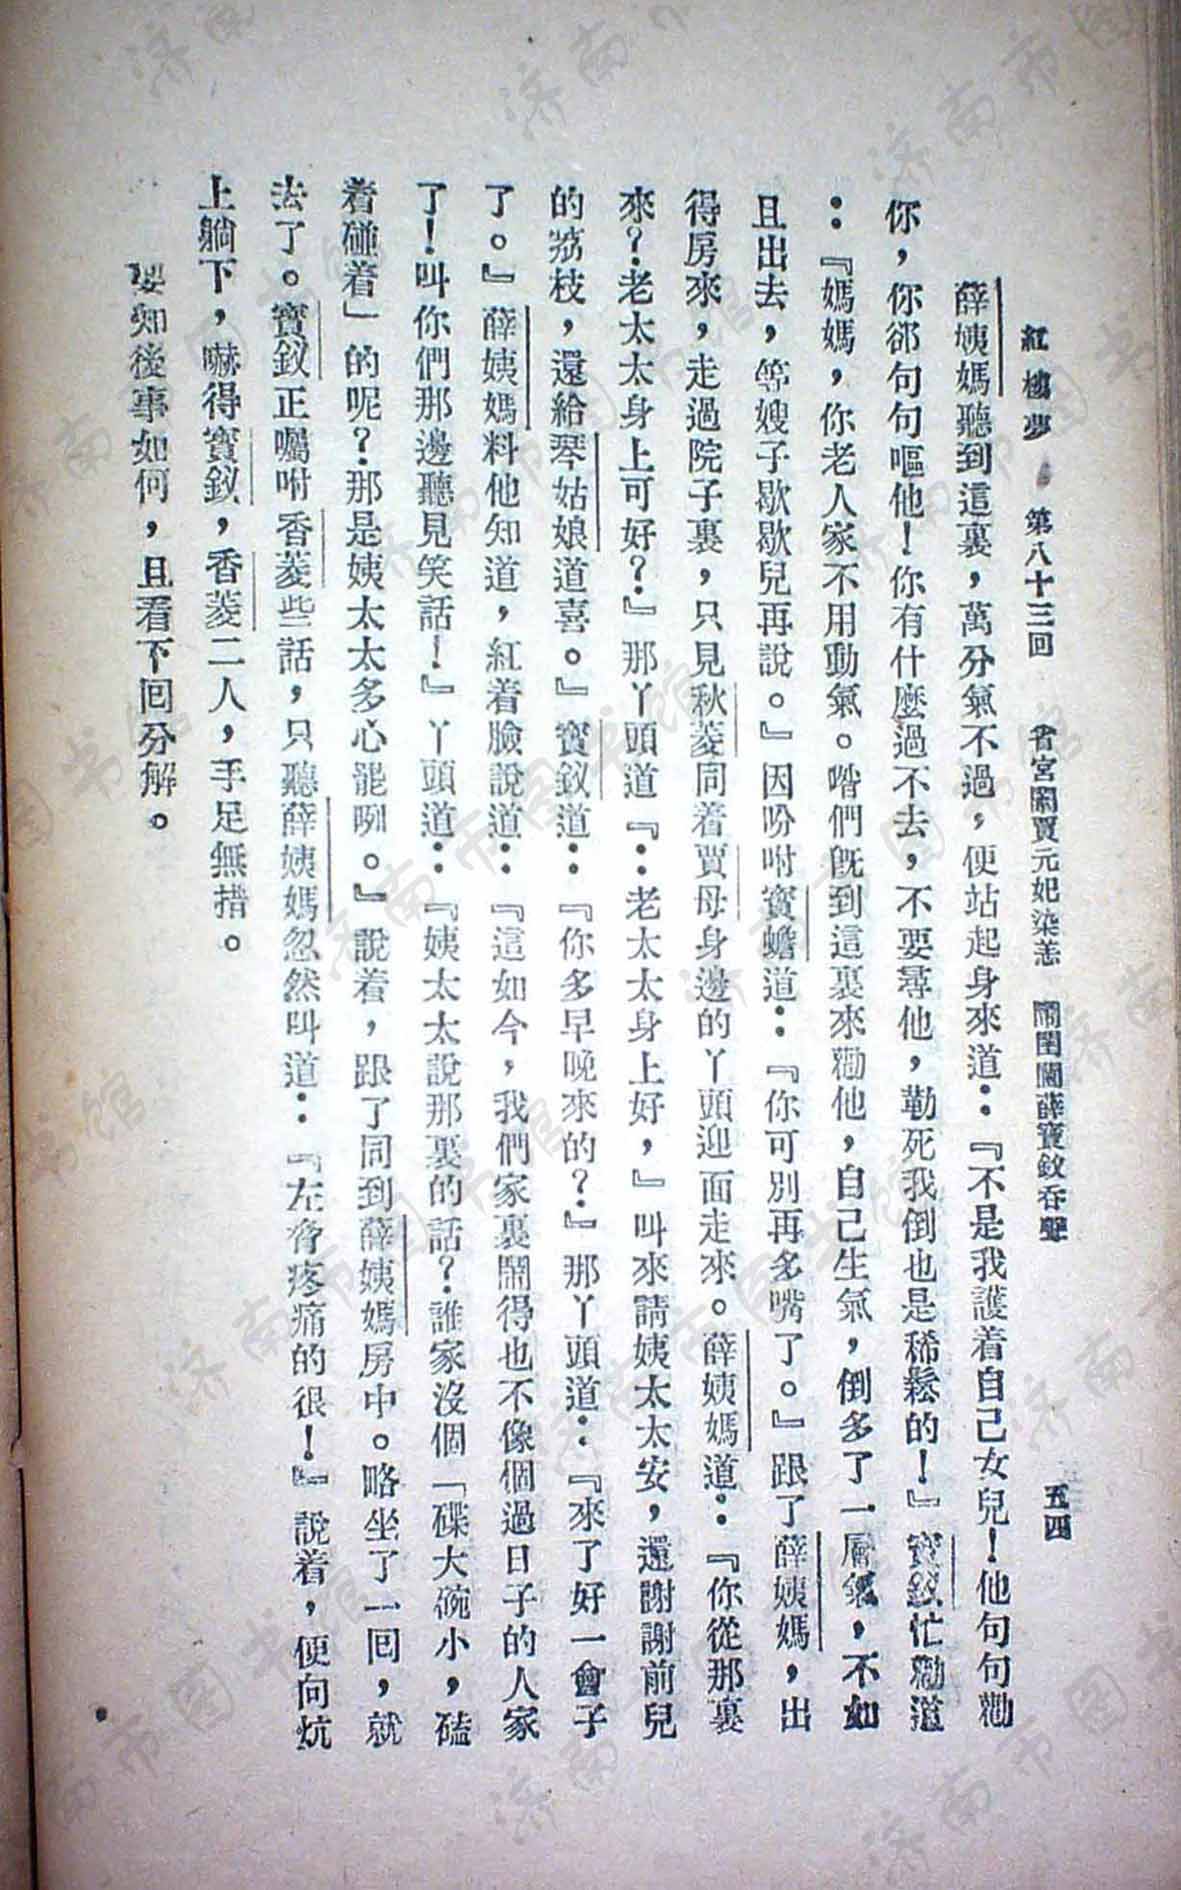 紅樓夢 第八十三回 省宮闈賈元妃染恙 鬧閨閫薛寶釵吞聲 五四
薛姨媽聽到這裏，萬分氣不過，便站起身來道：『不是我護着自己女兒！他句句勸
你，你卻句句嘔他！你有什麼過不去，不要尋他，勒死我倒也是稀鬆的！』寶釵忙勸道
：『媽媽，你老人家不用動氣。喒們旣到這裏來勸他，自己生氣，倒多了一層氣，不如
且出去，等嫂子歇歇兒再說。』因吩咐寶蟾道：『你可別再多嘴了。』跟了薛姨媽，出
得房來，走過院子裏，只見秋菱同着賈母身邊的丫頭迎面走來。薛姨媽道：『你從那裏
來？老太太身上可好？』那丫頭道『：老太太身上好，』叫來請姨太太安，還謝謝前兒
的荔枝，還給琴姑娘道喜。』寶釵道：『你多早晚來的？』那丫頭道：『來了好一會子
了。』薛姨媽料他知道，紅着臉說道：『這如今，我們家裏鬧得也不像個過日子的人家
了！叫你們那邊聽見笑話！』丫頭道：『姨太太說那裏的話？誰家沒個「碟大碗小，磕
着碰着」的呢？那是姨太太多心罷咧。』說着，跟了同到薛姨媽房中。略坐了一囘，就
去了。寶釵正囑咐香菱些話，只聽薛姨媽忽然叫道：『左脅疼痛的很！』說着，便向炕
上躺下，嚇得寶釵，香菱二人，手足無措。
要知後事如何，且看下囘分解。
济南市图书馆